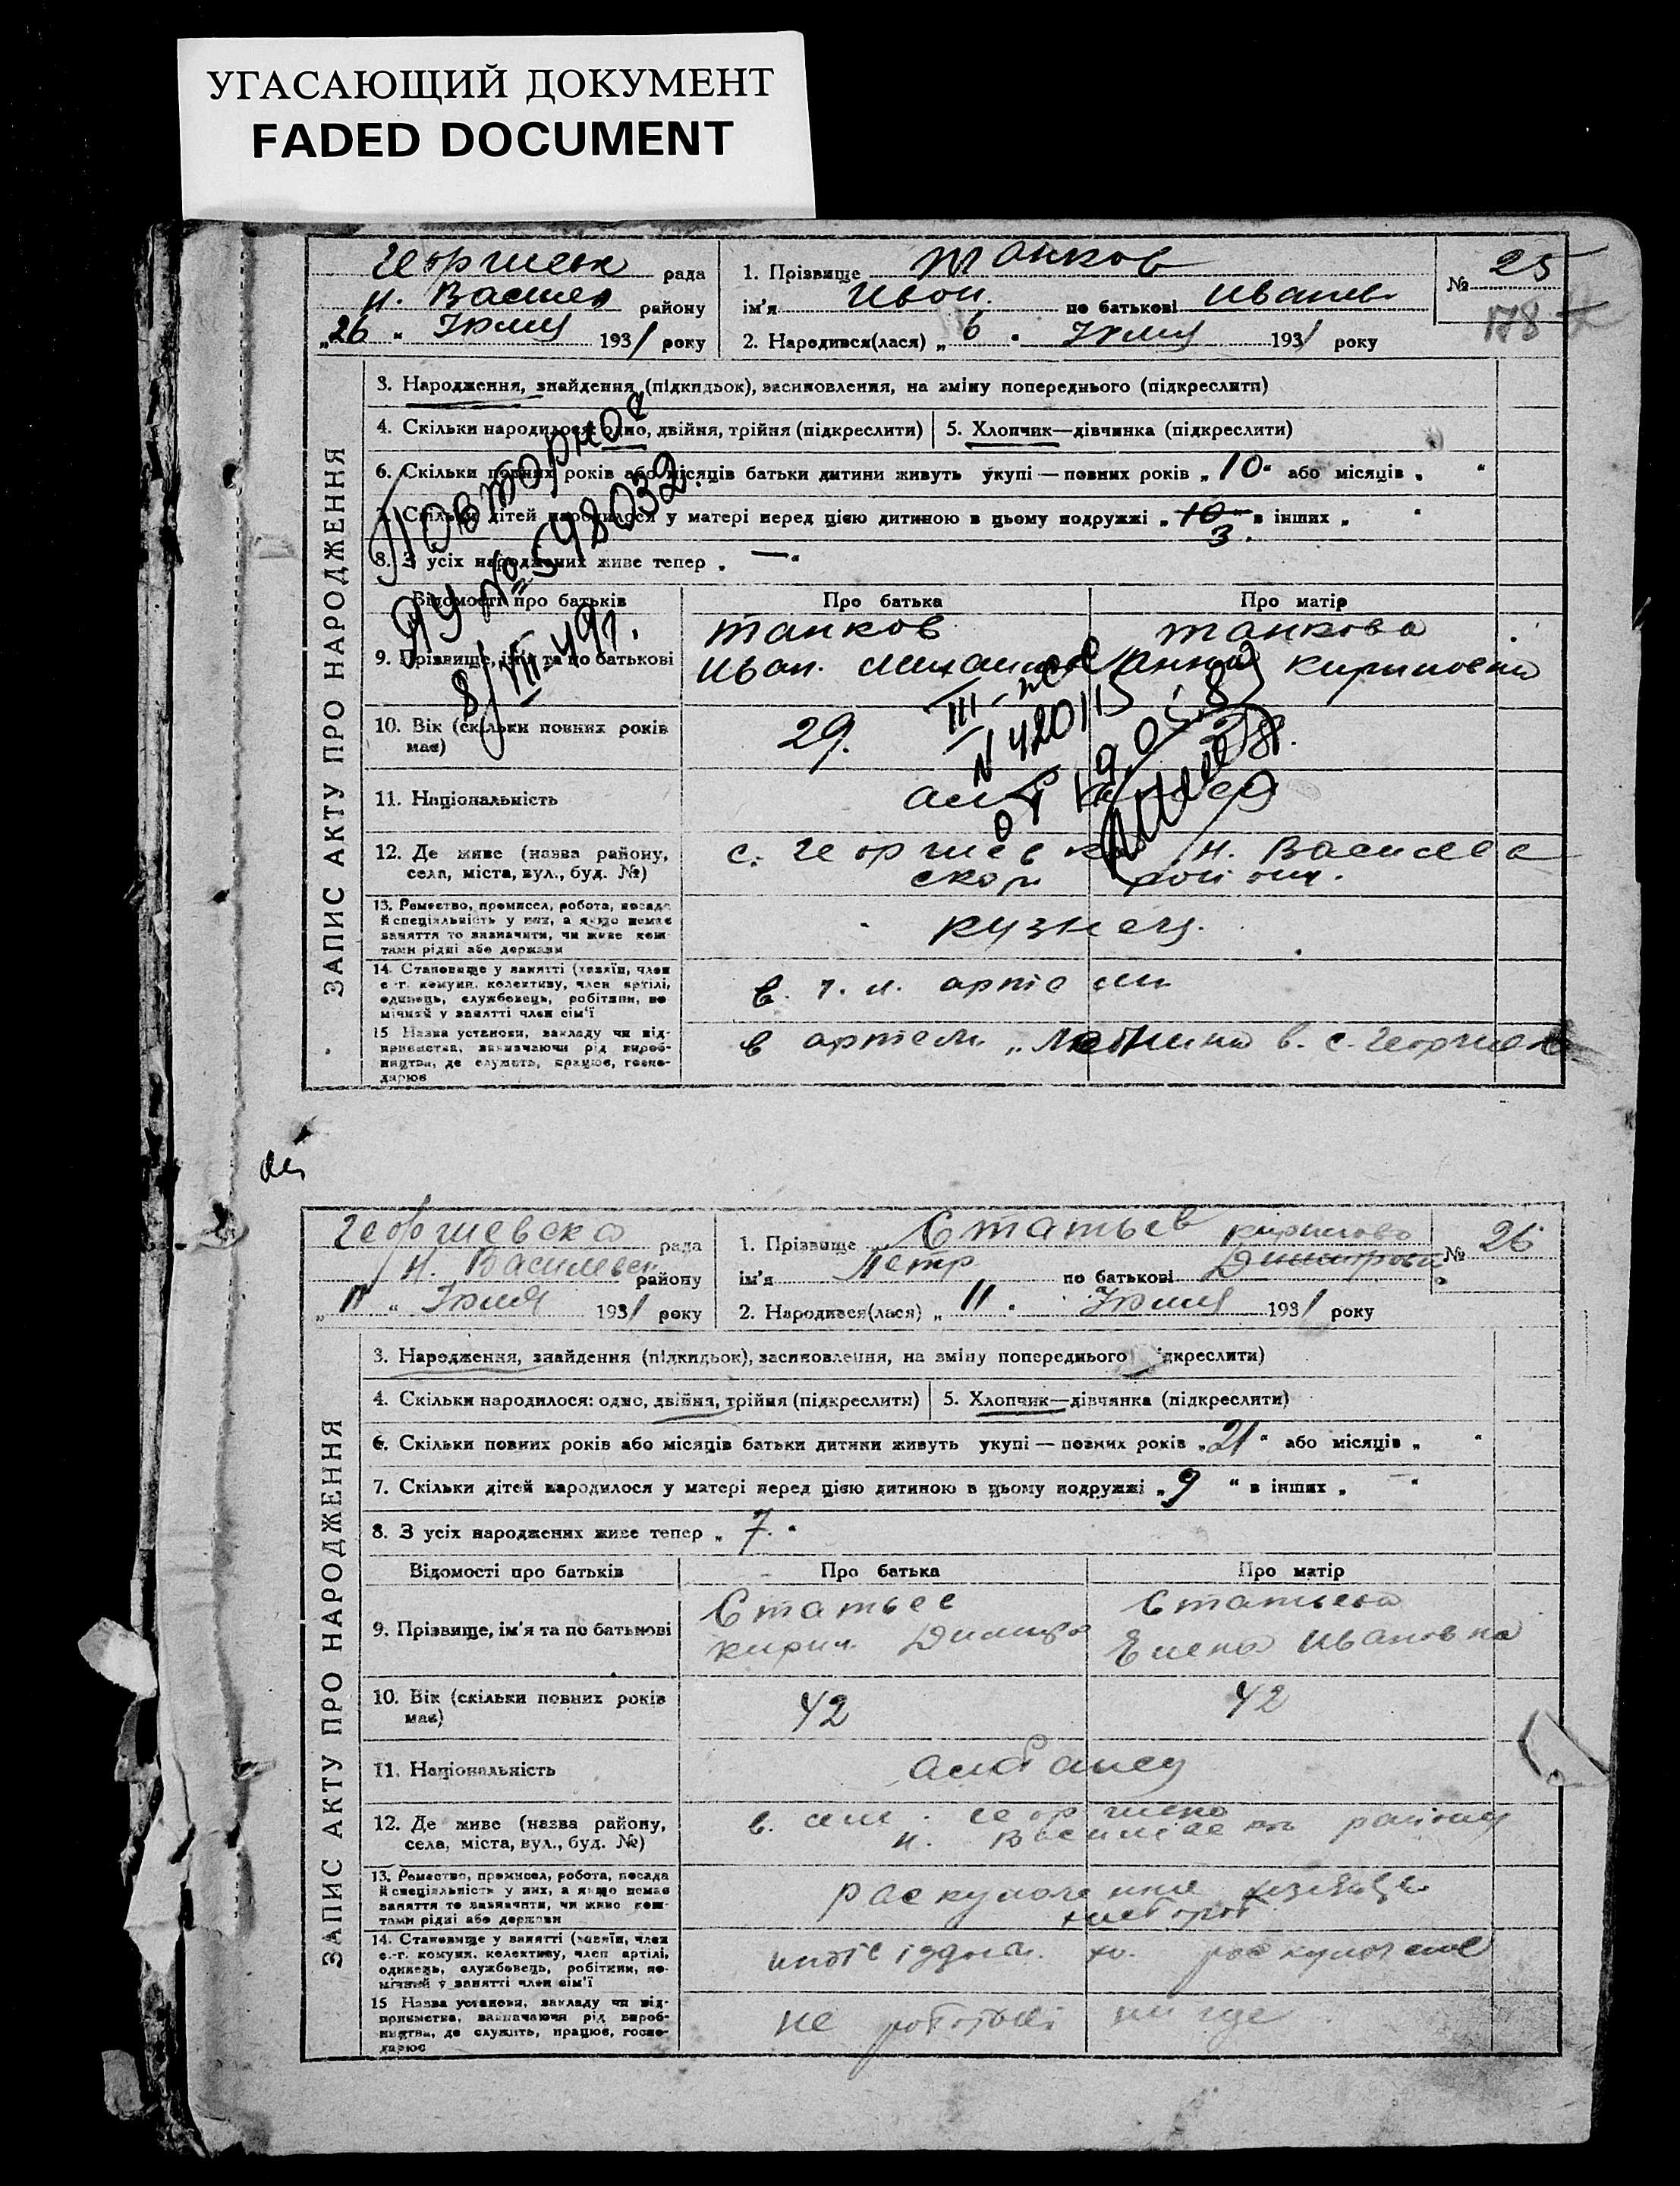 УГАСАЮЩИЙ ДОКУМЕНТ
FADED DOCUMENT
Георгиевск рада
н. Василев району
„26 “ Июля 1931 року
1. Прізвище Танков
ім'я Иван по батькові Иванов
2. Народився(лася) „ 6 “ Июля 1931 року
№ 25
178
ЗАПИС АКТУ ПРО НАРОДЖЕННЯ
3. Народження, знайдення (підкидьок), засиновлення, на зміну попереднього (підкреслити)
4. Скільки народилося: одно, двійня, трійня (підкреслити)
5. Хлопчик—дівчинка (підкреслити)
6. Скільки повних років або місяців батьки дитини живуть укупі — повних років „ 10 “ або місяців „ “
7. Скільки дітей народилося у матері перед цією дитиною в цьому подружжі „ 10 “ в інших „ “
3.
8. З усіх народжених живе тепер „ — “
Повторное
ЯУ № 598032
8/VII-49г.
Відомості про батьків
Про батька
Про матір
9. Прізвище, ім'я та по батькові
Танков
Иван.
Танкова
Анна Кириловна
III-
N 420115
10. Вік (скільки повних років має)
29.
28.
11. Національність
албанец
12. Де живе (назва району, села, міста, вул., буд. №)
с. Георгиевка н. Василевс
ском районі.
13. Ремество, промисел, робота, посада й спеціяльність у них, а якщо немає заняття то зазначити, чи живе коштами рідні або держави
кузнец.
14. Становище у занятті (хазяїн, член с.-г. комуни, колективу, член артілі, одинець, службовець, робітник, помічний у занятті член сім'ї
в. ч. л. артели
15 Назва установи, закладу чи підприємства, зазначаючи рід виробництва, де служить, працює, господарює
в артели „ в. с. Георгиев
Георгиевска рада
н. Василевск району
„ 11 “ Июля 1931 року
1. Прізвище Статьев
Кирилово
ім'я Петр по батькові Димитрови
2. Народився(лася) „ 11 “ Июля 1931 року
№ 26
ЗАПИС АКТУ ПРО НАРОДЖЕННЯ
3. Народження, знайдення (підкидьок), засиновлення, на зміну попереднього ідкреслити)
4. Скільки народилося: одно, двійня, трійня (підкреслити)
5. Хлопчик—дівчинка (підкреслити)
6. Скільки повних років або місяців батьки дитини живуть укупі — повних років „ 21 “ або місяців „ “
7. Скільки дітей народилося у матері перед цією дитиною в цьому подружжі „ 9 “ в інших „ — “
8. З усіх народжених живе тепер „ 7. “
Відомості про батьків
Про батька
Про матір
9. Прізвище, ім'я та по батькові
Статьев
Кирил Димитро
Статьева
Елена Ивановна
10. Вік (скільки повних років має)
42
42
11. Національність
албанец
12. Де живе (назва району, села, міста, вул., буд. №)
в. сел.
н. району
13. Ремество, промисел, робота, посада й спеціяльність у них, а якщо немає заняття то зазначити, чи живе коштами рідні або держави
раскулаче
14. Становище у занятті (хазяїн, член с.-г. комуни, колективу, член артілі, одинець, службовець, робітник, помічний у занятті член сім'ї
15 Назва установи, закладу чи підприємства, зазначаючи рід виробництва, де служить, працює, господарює
не ни где